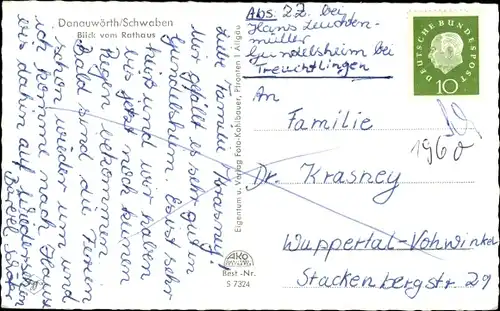 Donauwörth/Schwaben
Blick vom Rathaus
Liebe Familie Krasney!
Mir gefällt es sehr gut in
Gundelsheim. Es ist sehr
heiß und wir haben
bis jetzt noch keinen
Regen bekommen.
Bald sind die Ferien
schon wieder um und
ich komme nach Hause
bis dahin auf Wiedersehen
Eigentum u. Verlag Foto-Kohlbauer, Pfronten i. Allgäu
AKO
Best.-Nr.
S 7324
Abs. ZZ. bei
Hans Leuchten-
müller
Gundelsheim bei
Treuchtlingen
DEUTSCHE BUNDESPOST
10
1960
An
Familie
Dr. Krasney
Wuppertal-Vohwinkel
Stackenbergstr. 29